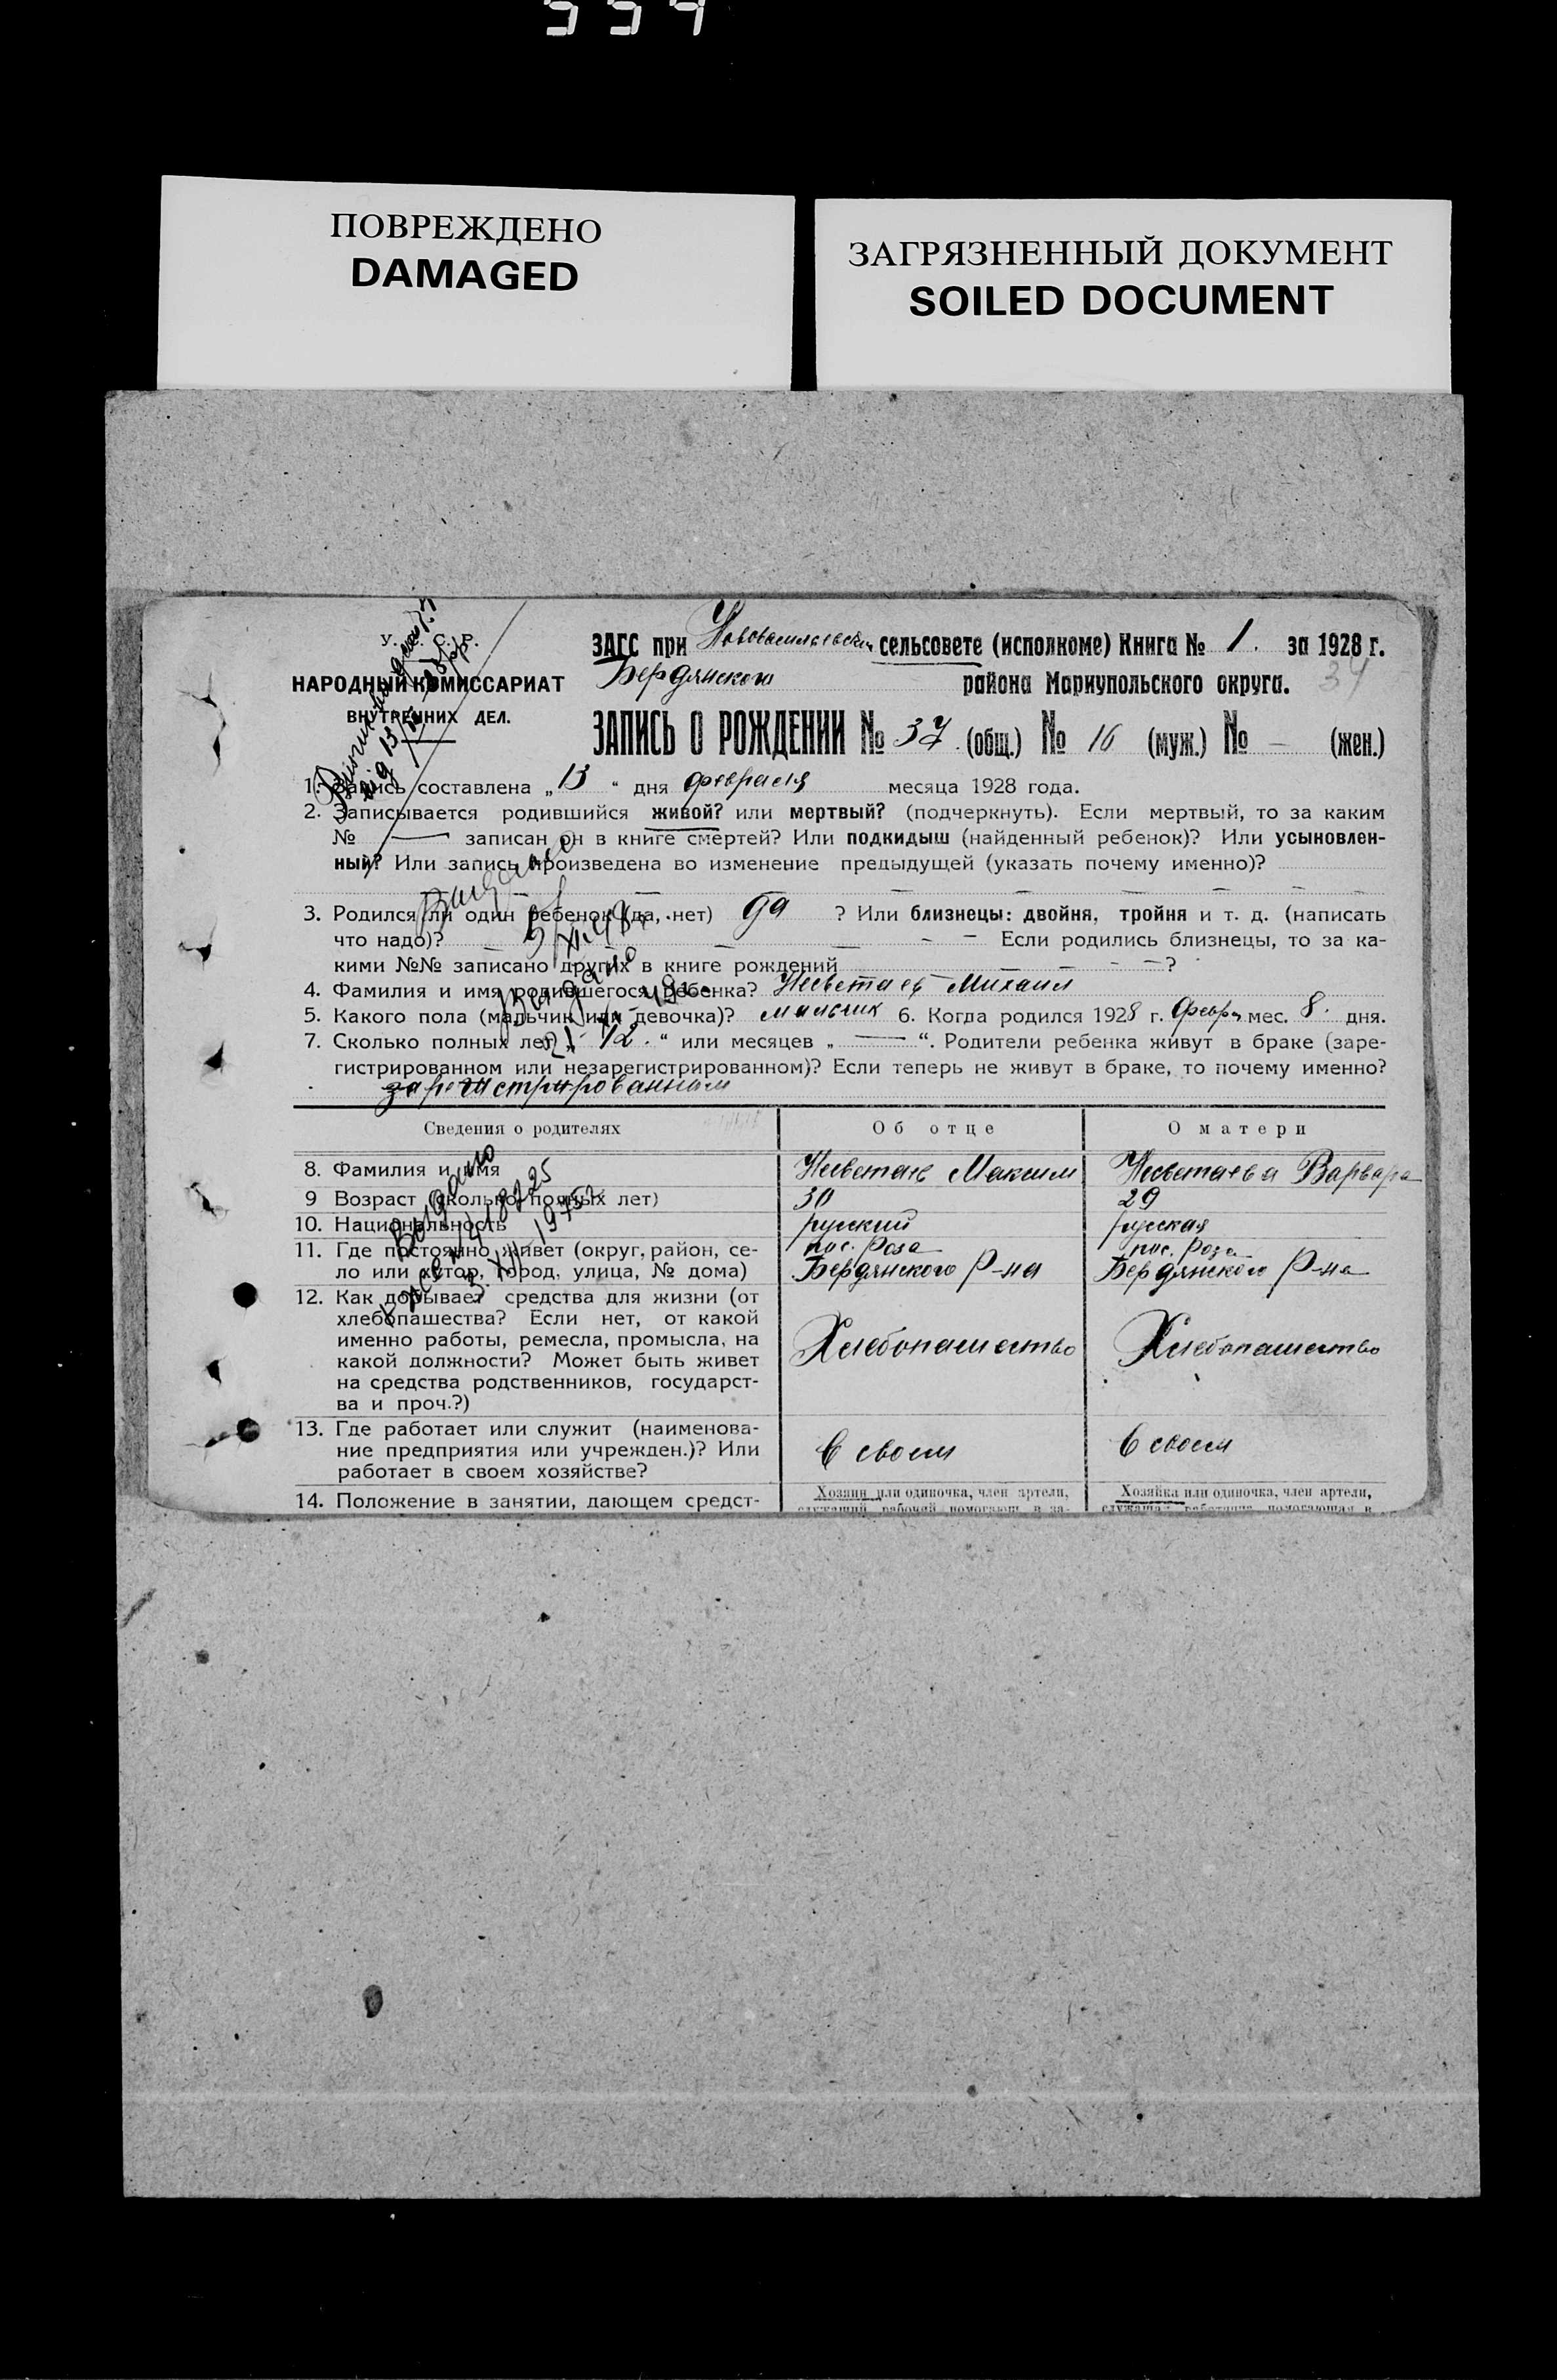 ПОВРЕЖДЕНО
DAMAGED
ЗАГРЯЗНЕННЫЙ ДОКУМЕНТ
SOILED DOCUMENT
У. С. С. Р.
НАРОДНЫЙ КОМИССАРИАТ
ВНУТРЕННИХ ДЕЛ.
ЗАГС при сельсовете (исполкоме) Книга № 1. за 1928 г.
Бердянского района Мариупольского округа. 34
ЗАПИСЬ О РОЖДЕНИИ № 37 (общ.) № 16 (муж.) № — (жен.)
1. Запись составлена „13“ дня февраля месяца 1928 года.
2. Записывается родившийся живой? или мертвый? (подчеркнуть). Если мертвый, то за каким
№ — записан он в книге смертей? Или подкидыш (найденный ребенок)? Или усыновлен-
ный? Или запись произведена во изменение предыдущей (указать почему именно)?
3. Родился ли один ребенок (да, нет) да ? Или близнецы: двойня, тройня и т. д. (написать
что надо)? — Если родились близнецы, то за ка-
кими №№ записано других в книге рождений — ?
4. Фамилия и имя родившегося ребенка? Несветаев Михаил
5. Какого пола (мальчик или девочка)? мальчик 6. Когда родился 1928 г. Февр. мес. 8. дня.
7. Сколько полных лет „12.“ или месяцев „—“. Родители ребенка живут в браке (заре-
гистрированном или незарегистрированном)? Если теперь не живут в браке, то почему именно?
зарегистрированным
Сведения о родителях Об отце О матери
8. Фамилия и имя Несветаев Максим Несветаева Варвара
9 Возраст (сколько полных лет) 30 29
10. Национальность русский русская
11. Где постоянно живет (округ, район, се- пос. Роза пос. Роза
ло или хутор, город, улица, № дома) Бердянского Р-на Бердянского Р-на
12. Как добывает средства для жизни (от
хлебопашества? Если нет, от какой
именно работы, ремесла, промысла, на
какой должности? Может быть живет
на средства родственников, государст-
ва и проч.?)
Хлебопашество Хлебопашество
13. Где работает или служит (наименова-
ние предприятия или учрежден.)? Или
работает в своем хозяйстве?
в своем в своем
14. Положение в занятии, дающем средст- Хозяин или одиночка, член артели, Хозяйка или одиночка, член артели,
Выдано
Выдано
Выдано